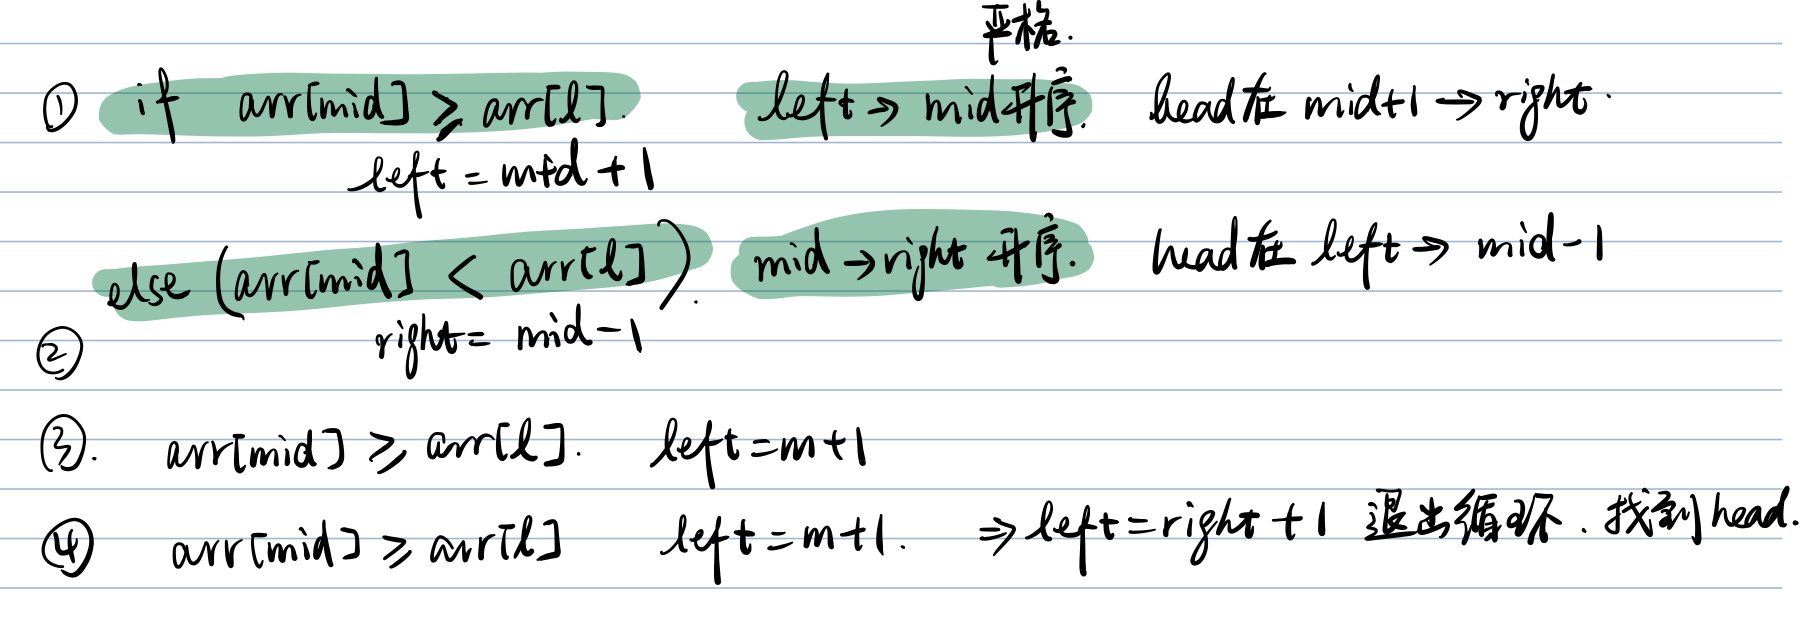 严格.
① if arr[mid] ≥ arr[l]. left → mid升序. head在 mid+1 → right.
left = mid + 1
else (arr[mid] < arr[l]). mid → right 升序. head在 left → mid-1
② right = mid - 1
③. arr[mid] ≥ arr[l]. left = m+1
④ arr[mid] ≥ arr[l] left = m+1. ⇒ left = right + 1 退出循环. 找到head.